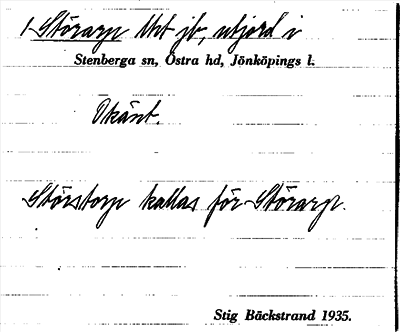 1 Störarp Utst jb, utjord i
Stenberga sn, Östra hd, Jönköpings l.
Okänt.
Störstorp kallas för Störarp.
Stig Bäckstrand 1935.